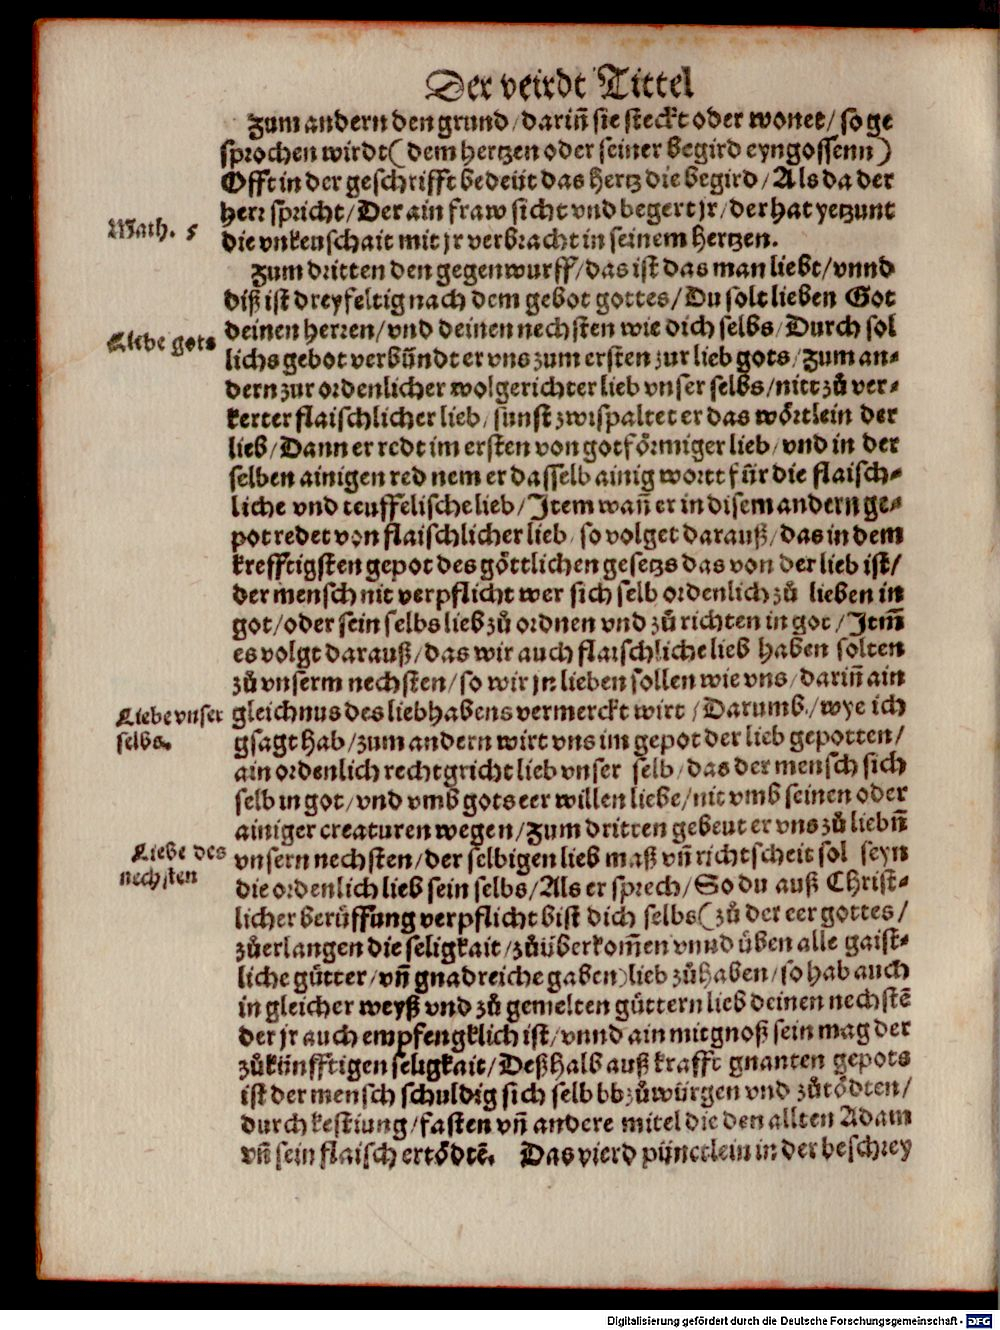 Der veirdt Tittel
Zum andern den grund/darin̄ sie steckt oder wonet/ so ge
sprochen wirdt(dem hertzen oder seiner begird eyngossenn)
Offt in der geschrifft bedeüt das hertz die begird/Als da der
herr spricht/Der ain fraw sicht vnd begert jr/der hat yetzunt
Math. 5
die vnkeuschait mit jr verbracht in seinem hertzen.
Zum dritten den gegenwurff/das ist das man liebt/vnnd
diß ist dreyfeltig nach dem gebot gottes/Du solt lieben Got
Liebe gots
deinen herren/vnd deinen nechsten wie dich selbs/Durch sol
lichs gebot verbündt er vns zum ersten zur lieb gots/Zum an-
dern zur ordenlicher wolgerichter lieb vnser selbs/nitt zů ver-
kerter flaischlicher lieb/sunst zwispaltet er das wörtlein der
lieb/Dann er redt im ersten von gotförmiger lieb/vnd in der
selben ainigen red nem er dasselb ainig wortt für die flaisch-
liche vnd teuffelische lieb/Item wan̄ er in disem andern ge-
pot redet von flaischlicher lieb/so volget darauß/das in dem
krefftigsten gepot des göttlichen gesetzs das von der lieb ist/
der mensch nit verpflicht wer sich selb ordenlich zů lieben in
got/oder sein selbs lieb zů ordnen vnd zů richten in got/Itm̄
es volgt darauß/das wir auch flaischliche lieb haben solten
zů vnserm nechsten/so wir jn lieben sollen wie vns/darin̄ ain
Liebe vnser
selbs.
gleichnus des liebhabens vermerckt wirt/Darumb/wye ich
gsagt hab/zum andern wirt vns im gepot der lieb gepotten/
ain ordenlich rechtgricht lieb vnser selb/das der mensch sich
selb in got/vnd vmb gots eer willen liebe/nit vmb seinen oder
ainiger creaturen wegen/Zum dritten gebeut er vns zů liebn̄
Liebe des
nechsten
vnsern nechsten/der selbigen lieb maß vn̄ richtscheit sol seyn
die ordenlich lieb sein selbs/Als er sprech/So du auß Christ-
licher berüffung verpflicht bist dich selbs(zů der eer gottes/
zůerlangen die seligkait/zůüberkom̄en vnnd üben alle gaist-
liche gütter/vn̄ gnadreiche gaben)lieb zůhaben/so hab auch
in gleicher weyß vnd zů gemelten güttern lieb deinen nechstē
der jr auch empfengklich ist/vnnd ain mitgnoß sein mag der
zůkünfftigen seligkait/Deßhalb auß krafft gnanten gepots
ist der mensch schuldig sich selb bb zůwürgen vnd zůtödten/
durch kestiung/fasten vn̄ andere mitel die den allten Adam
vn̄ sein flaisch ertödtē. Das vierd pünctlein in der beschrey
Digitalisierung gefördert durch die Deutsche Forschungsgemeinschaft - DFG